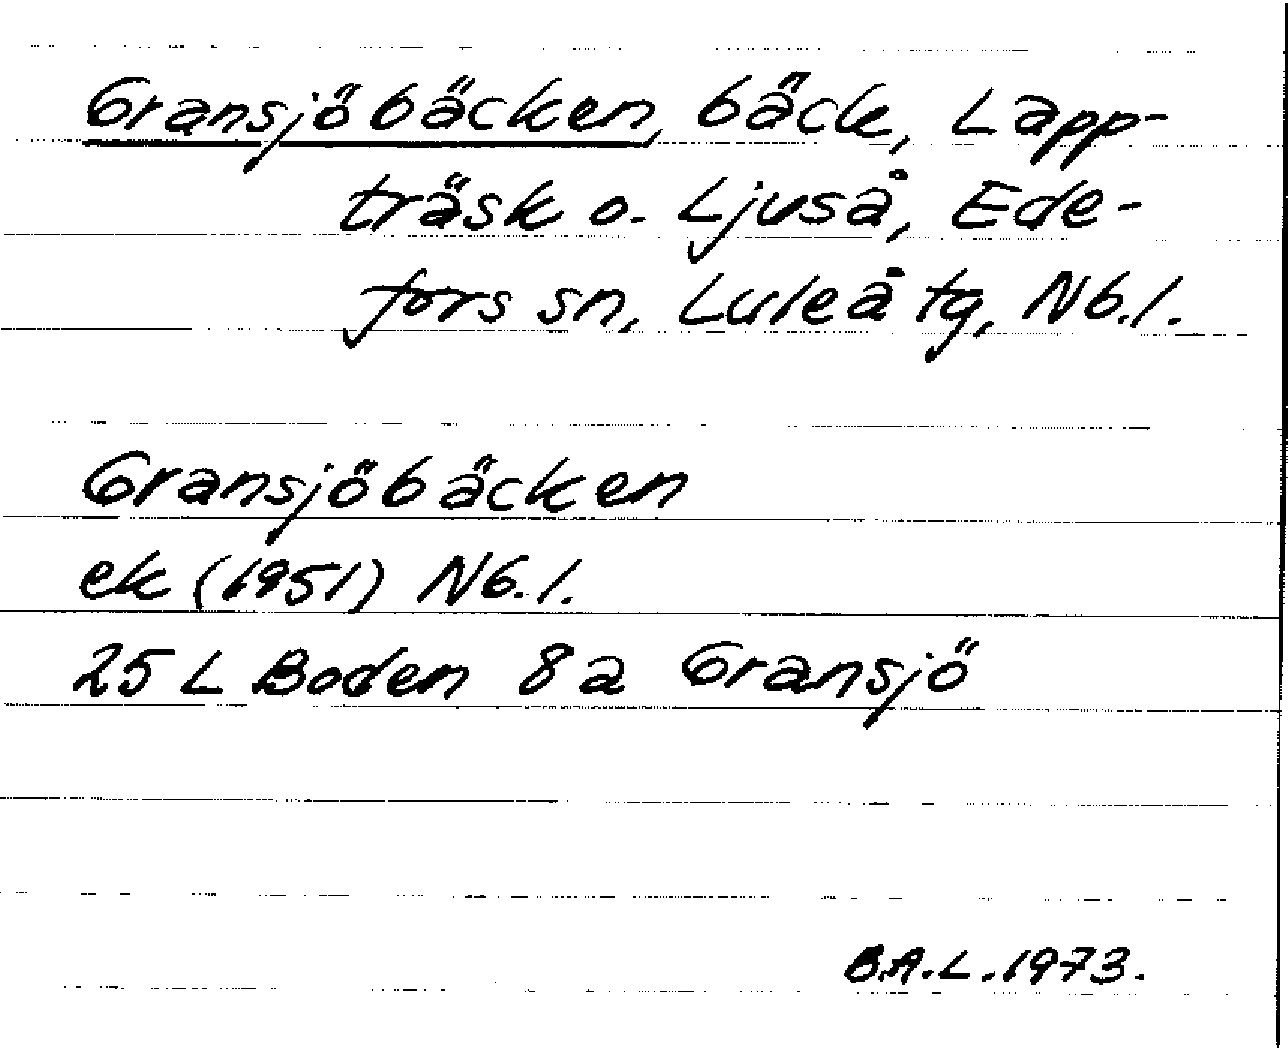 Gransjöbäcken, bäck, Lapp-
träsk o. Ljuså, Ede-
fors sn, Luleå tg, Nb.l.
Gransjöbäcken
ek (1951) Nb.l.
25 L Boden 8a Gransjö
B.A.L. 1973.